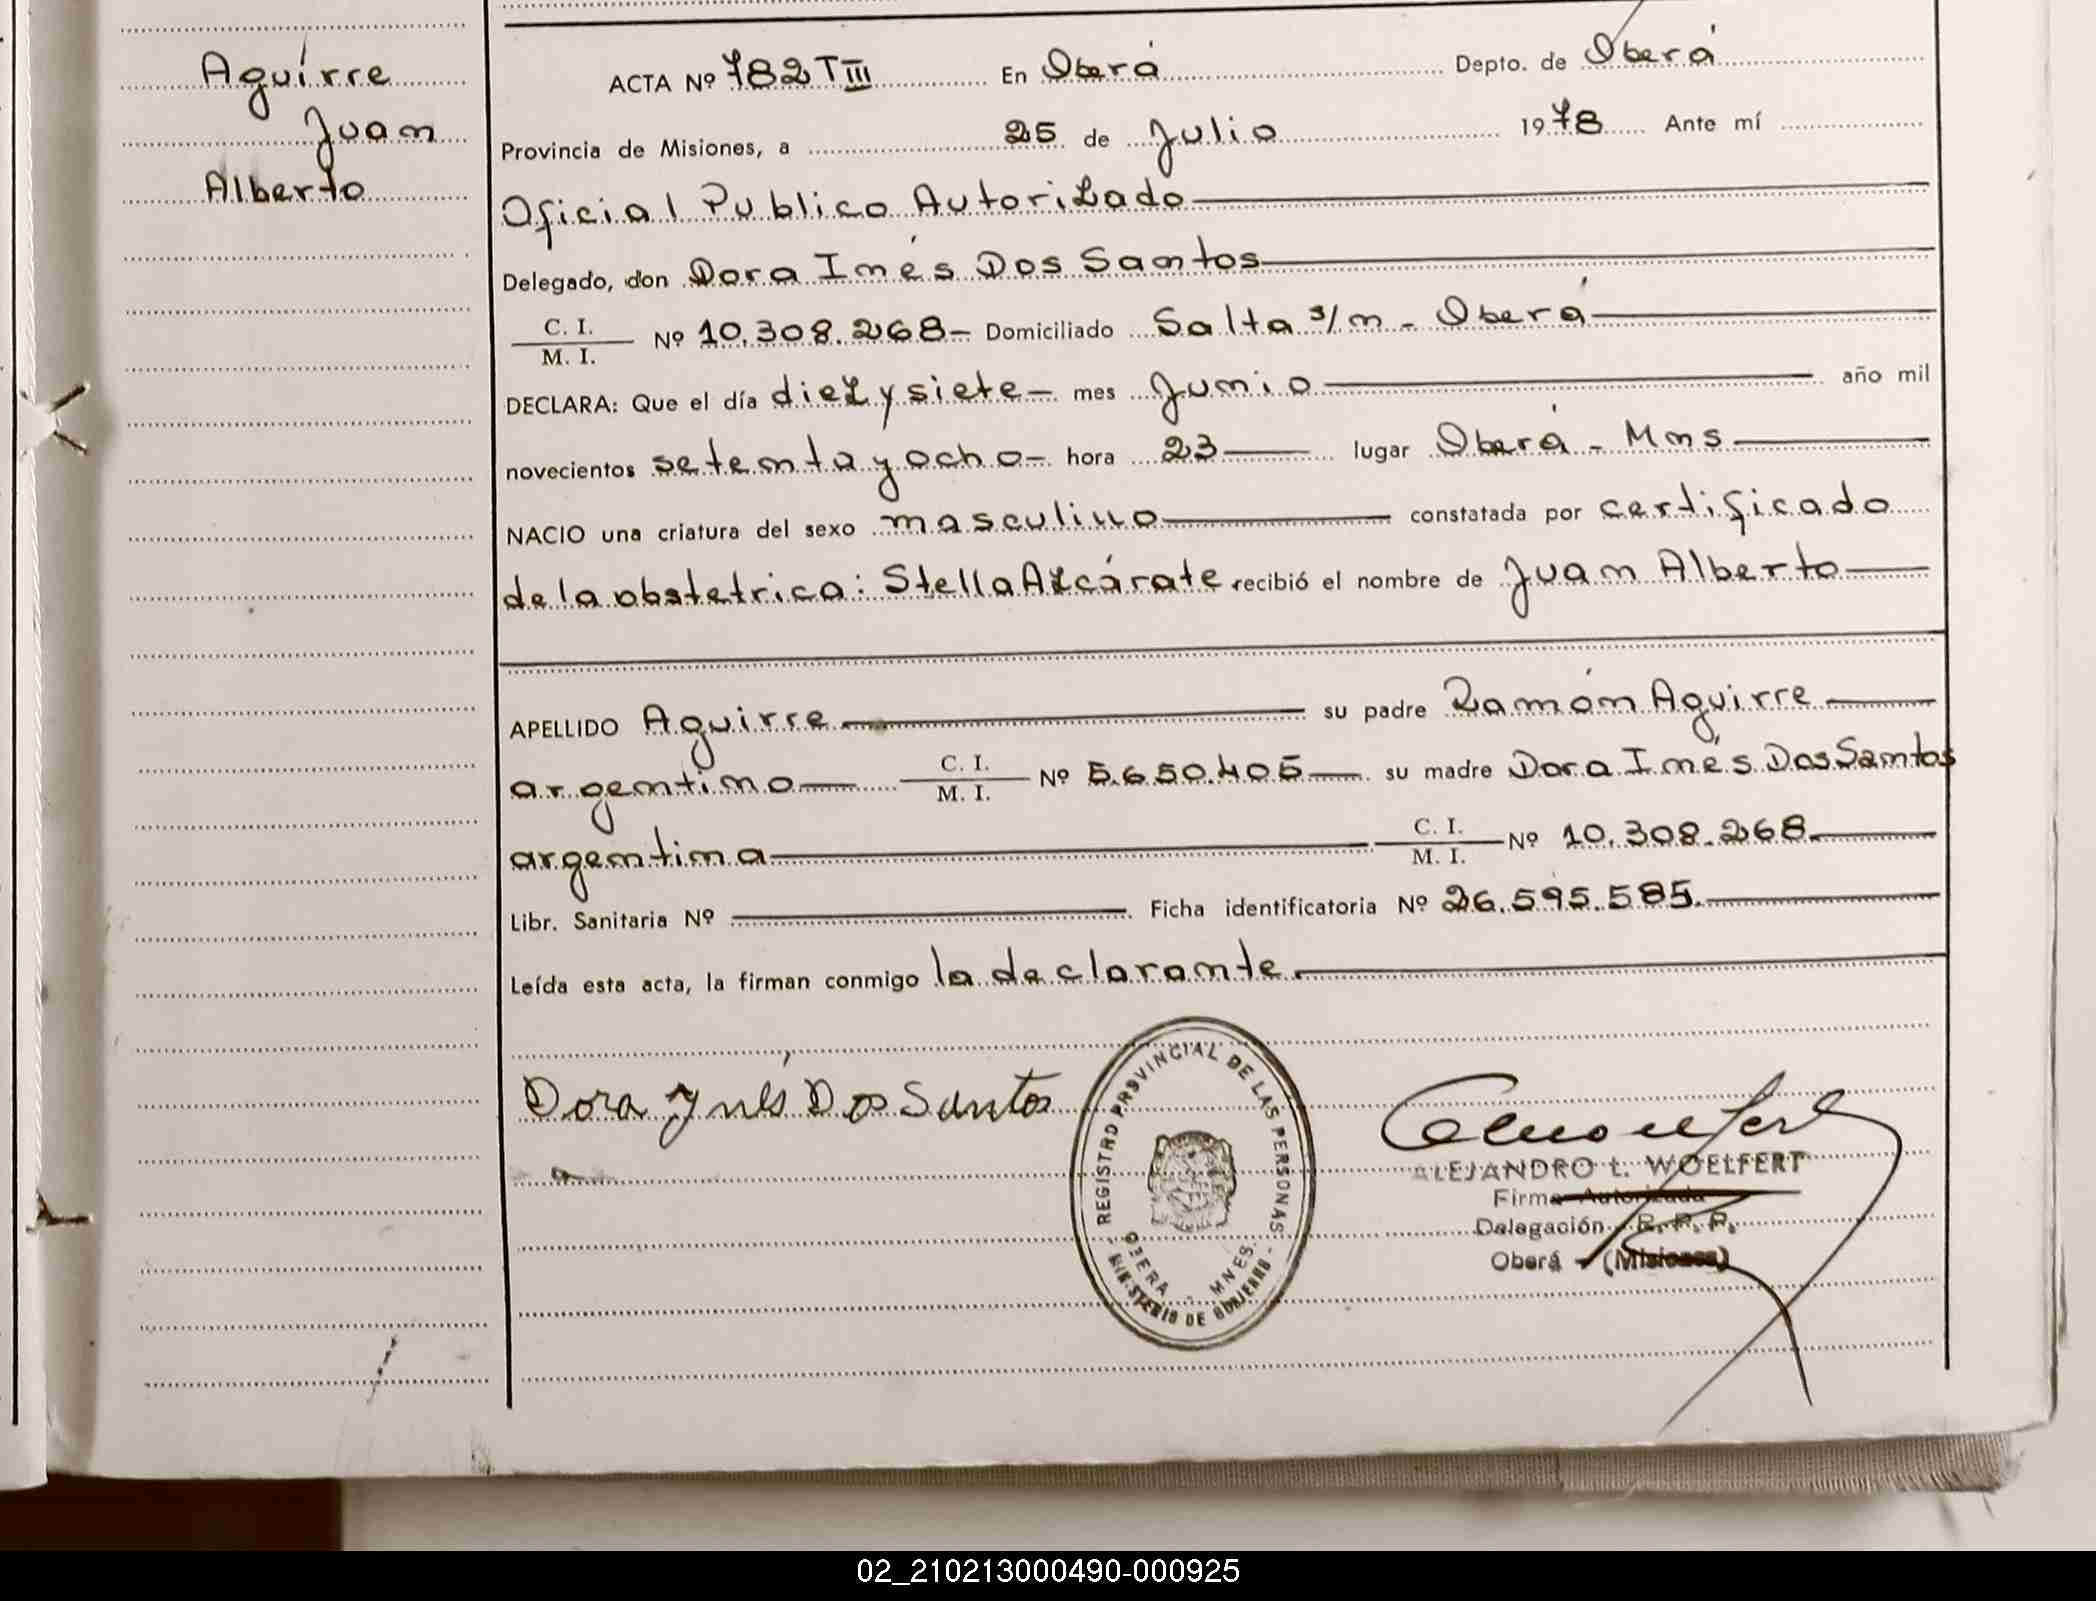 Aguirre
Juan
Alberto
ACTA Nº 782 T III En Oberá Depto. de Oberá
Provincia de Misiones, a 25 de Julio 1978 Ante mí
Oficial Publico Autorizado
Delegado, don Dora Inés Dos Santos
C. I.
M. I. Nº 10.308.268- Domiciliado Salta s/n - Oberá
DECLARA: Que el día diez y siete - mes Junio año mil
novecientos setenta y ocho - hora 23 lugar Oberá - Mns
NACIO una criatura del sexo masculino constatada por certificado
de la obstetrica: Stella Azcárate recibió el nombre de Juan Alberto
APELLIDO Aguirre su padre Ramón Aguirre
argentino C. I.
M. I. Nº 5.650.405 su madre Dora Inés Dos Santos
argentina C. I.
M. I. Nº 10.308.268.
Libr. Sanitaria Nº Ficha identificatoria Nº 26.595.585.
Leída esta acta, la firman conmigo la declarante.
Dora Ynés Dos Santos
REGISTRO PROVINCIAL DE LAS PERSONAS
OBERA - MNES.
MINISTERIO DE GOBIERNO
ALEJANDRO L. WOELFERT
Firma Autorizada
Delegación R. P. P.
Oberá - (Misiones)
02_210213000490-000925